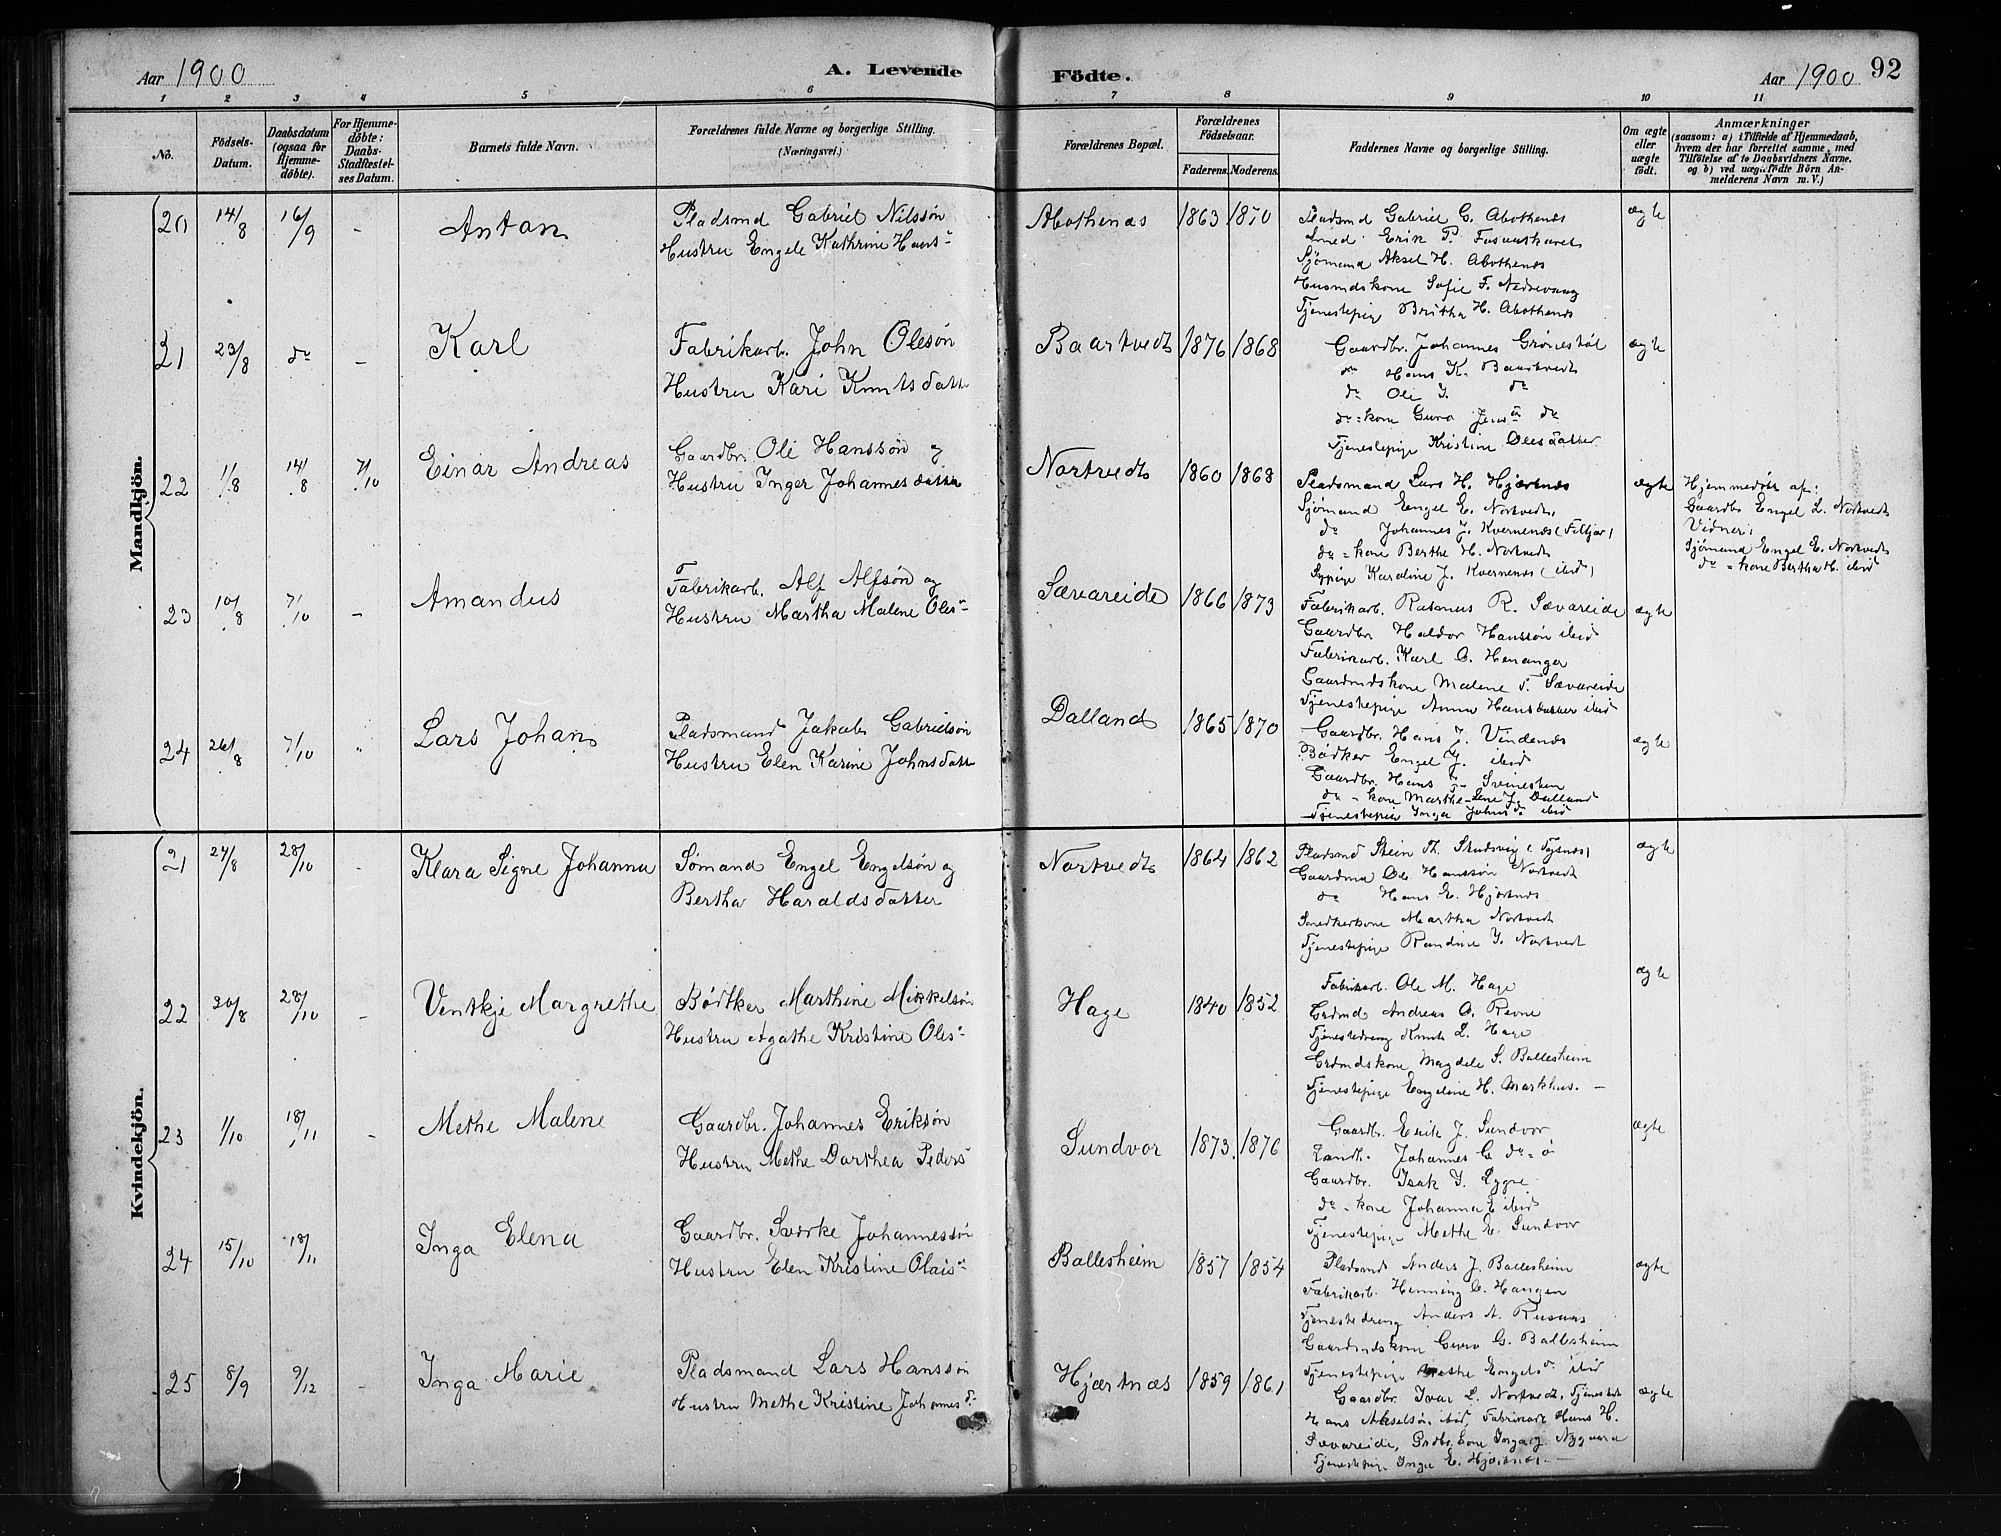 Aar 1900
A. Levende
Födte.
Aar 1900
92
1 2 3 4 5 6 7 8 9 10 11
No.
Födsels-
Datum.
Daabsdatum
(ogsaa for
Hjemme-
döbte).
For Hjemme-
döbte:
Daabs-
Stadfæstel-
ses Datum.
Barnets fulde Navn.
Forældrenes fulde Navne og borgerlige Stilling.
(Næringsvei.)
Forældrenes Bopæl.
Forældrenes
Födselsaar.
Faderens. Moderens.
Faddernes Navne og borgerlige Stilling.
Om ægte
eller
uægte
födt.
Anmærkninger
(saasom: a) i Tilfælde af Hjemmedaab,
hvem der har forrettet samme, med
Tilföielse af to Daabsvidners Navne,
og b) ved uægte födte Börn An-
melderens Navn m. V.)
Mandkjön.
20 14/8 16/9 - Antan
Pladsmd Gabriel Nilssøn
Hustru Engele Kathrine Hans-
Abothenæs 1863 1870
Pladsmd Gabriel G. Abothenæs
Erik P.
Sjømand Aksel H. Abothenæs
Husmdskone Sofie F.
Tjenestepige Britha H. Abothenæs
ægte
21 23/8 do - Karl
Fabrikarb. John Olesøn
Hustru Kari Knutsdatter
Baartvedt 1876 1868
Gaardbr. Johannes Grønestøl
do Hans K. Baartvedt
do Ole J. do
do-kone Guro Jensd do
Tjenestepige Kristine Olesdatter
ægte
22 1/8 14/8 7/10 Einar Andreas
Gaardbr. Ole Hanssøn og
Hustru Inger Johannesdatter
Nortvedt 1860 1868
Pladsmand Lars H. Hjærtnæs
Sjømand Engel E. Nortvedt,
do Johannes J. Kvernenæs (Fitjar)
do-kone Berthe H. Nortvedt
Sypige Karoline J. Kvernenæs (ibid)
ægte
Hjemmedøbt af:
Gaardbr Engel L. Nortvedt
Vidner:
Sjømand Engel E. Nortvedt
do-kone Bertha H. ibid
23 10/8 7/10 - Amandus
Fabrikarb. Alf Alfsøn og
Hustru Martha Malene Oles-
Sævareide 1866 1873
Fabrikarb. Rasmus R. Sævareide
Gaardbr. Haldor Hanssøn ibid
Fabrikarb. Karl O. Henanger
Gaardmdskone Malene T. Sævareide
Tjenestepige Anna Hansdatter ibid
ægte
24 26/8 7/10 " Lars Johan
Pladsmand Jakob Gabrielsøn
Hustru Elen Karine Johnsdatter
Dalland 1865 1870
Gaardbr. Hans J. Vindenæs
Bødker Engel J. ibid
Gaardbr. Hans T.
do-kone Marthe-Lene J. Dalland
Tjenestepige Inga Johnsd ibid
ægte
Kvindekjön.
21 24/8 28/10 - Klara Signe Johanna
Sømand Engel Engelsøn og
Bertha Haraldsdatter
Nortvedt 1864 1862
Pladsmd Stein Th. Skudsvig (Tysnæs)
Gaardmd Ole Hanssøn Nortvedt
do Hans E. Hjærtnæs
Snedkerkone Martha Nortvedt
Tjenestepige Randine J. Nortvedt
ægte
22 20/8 28/10 - Ventkje Margrethe
Bødtker Marthine Mikkelsøn
Hustru Agathe Kristine Oles-
Hage 1840 1852
Fabrikarb. Ole M. Hage
Grdmd Andreas O. Revne
Tjenestedreng Knut L. Hage
Grdmdskone Magdele S. Ballesheim
Tjenestepige Engeline H. Markhus. -
ægte
23 1/10 18/11 - Methe Malene
Gaardbr. Johannes Eriksøn
Hustru Methe Darthea Peders-
Sundvor 1873. 1876
Gaardb. Erik J. Sundvor
Landh. Johannes G do
Gaardbr. Isak J. Lygre
do-kone Johanna E ibid
Tjenestepige Methe E. Sundvor
ægte
24 15/10 18/11 Inga Elena
Gaardbr. Sværke Johannessøn
Hustru Elen Kristine Olais-
Ballesheim 1857 1854
Pladsmd Anders J. Ballesheim
Fabrikarb. Henning C. Hangen
Tjenestedreng Anders A. Rusnæs
Gaardmdskone Guro G. Ballesheim
Tjenestepige Methe Engelsd ibid
ægte
25 8/9 9/12 - Inga Marie
Pladsmand Lars Hanssøn
Hustru Methe Kristine Johannesd-
Hjærtnæs 1859 1861
Gaardbr. Ivar L. Nortvedt,
Hans Akselsøn ibid, Fabrikarb Hans H.
Sævareide, Grdbr. kone Nygaard
Tjenestepige Inga E. Hjærtnæs. -
ægte